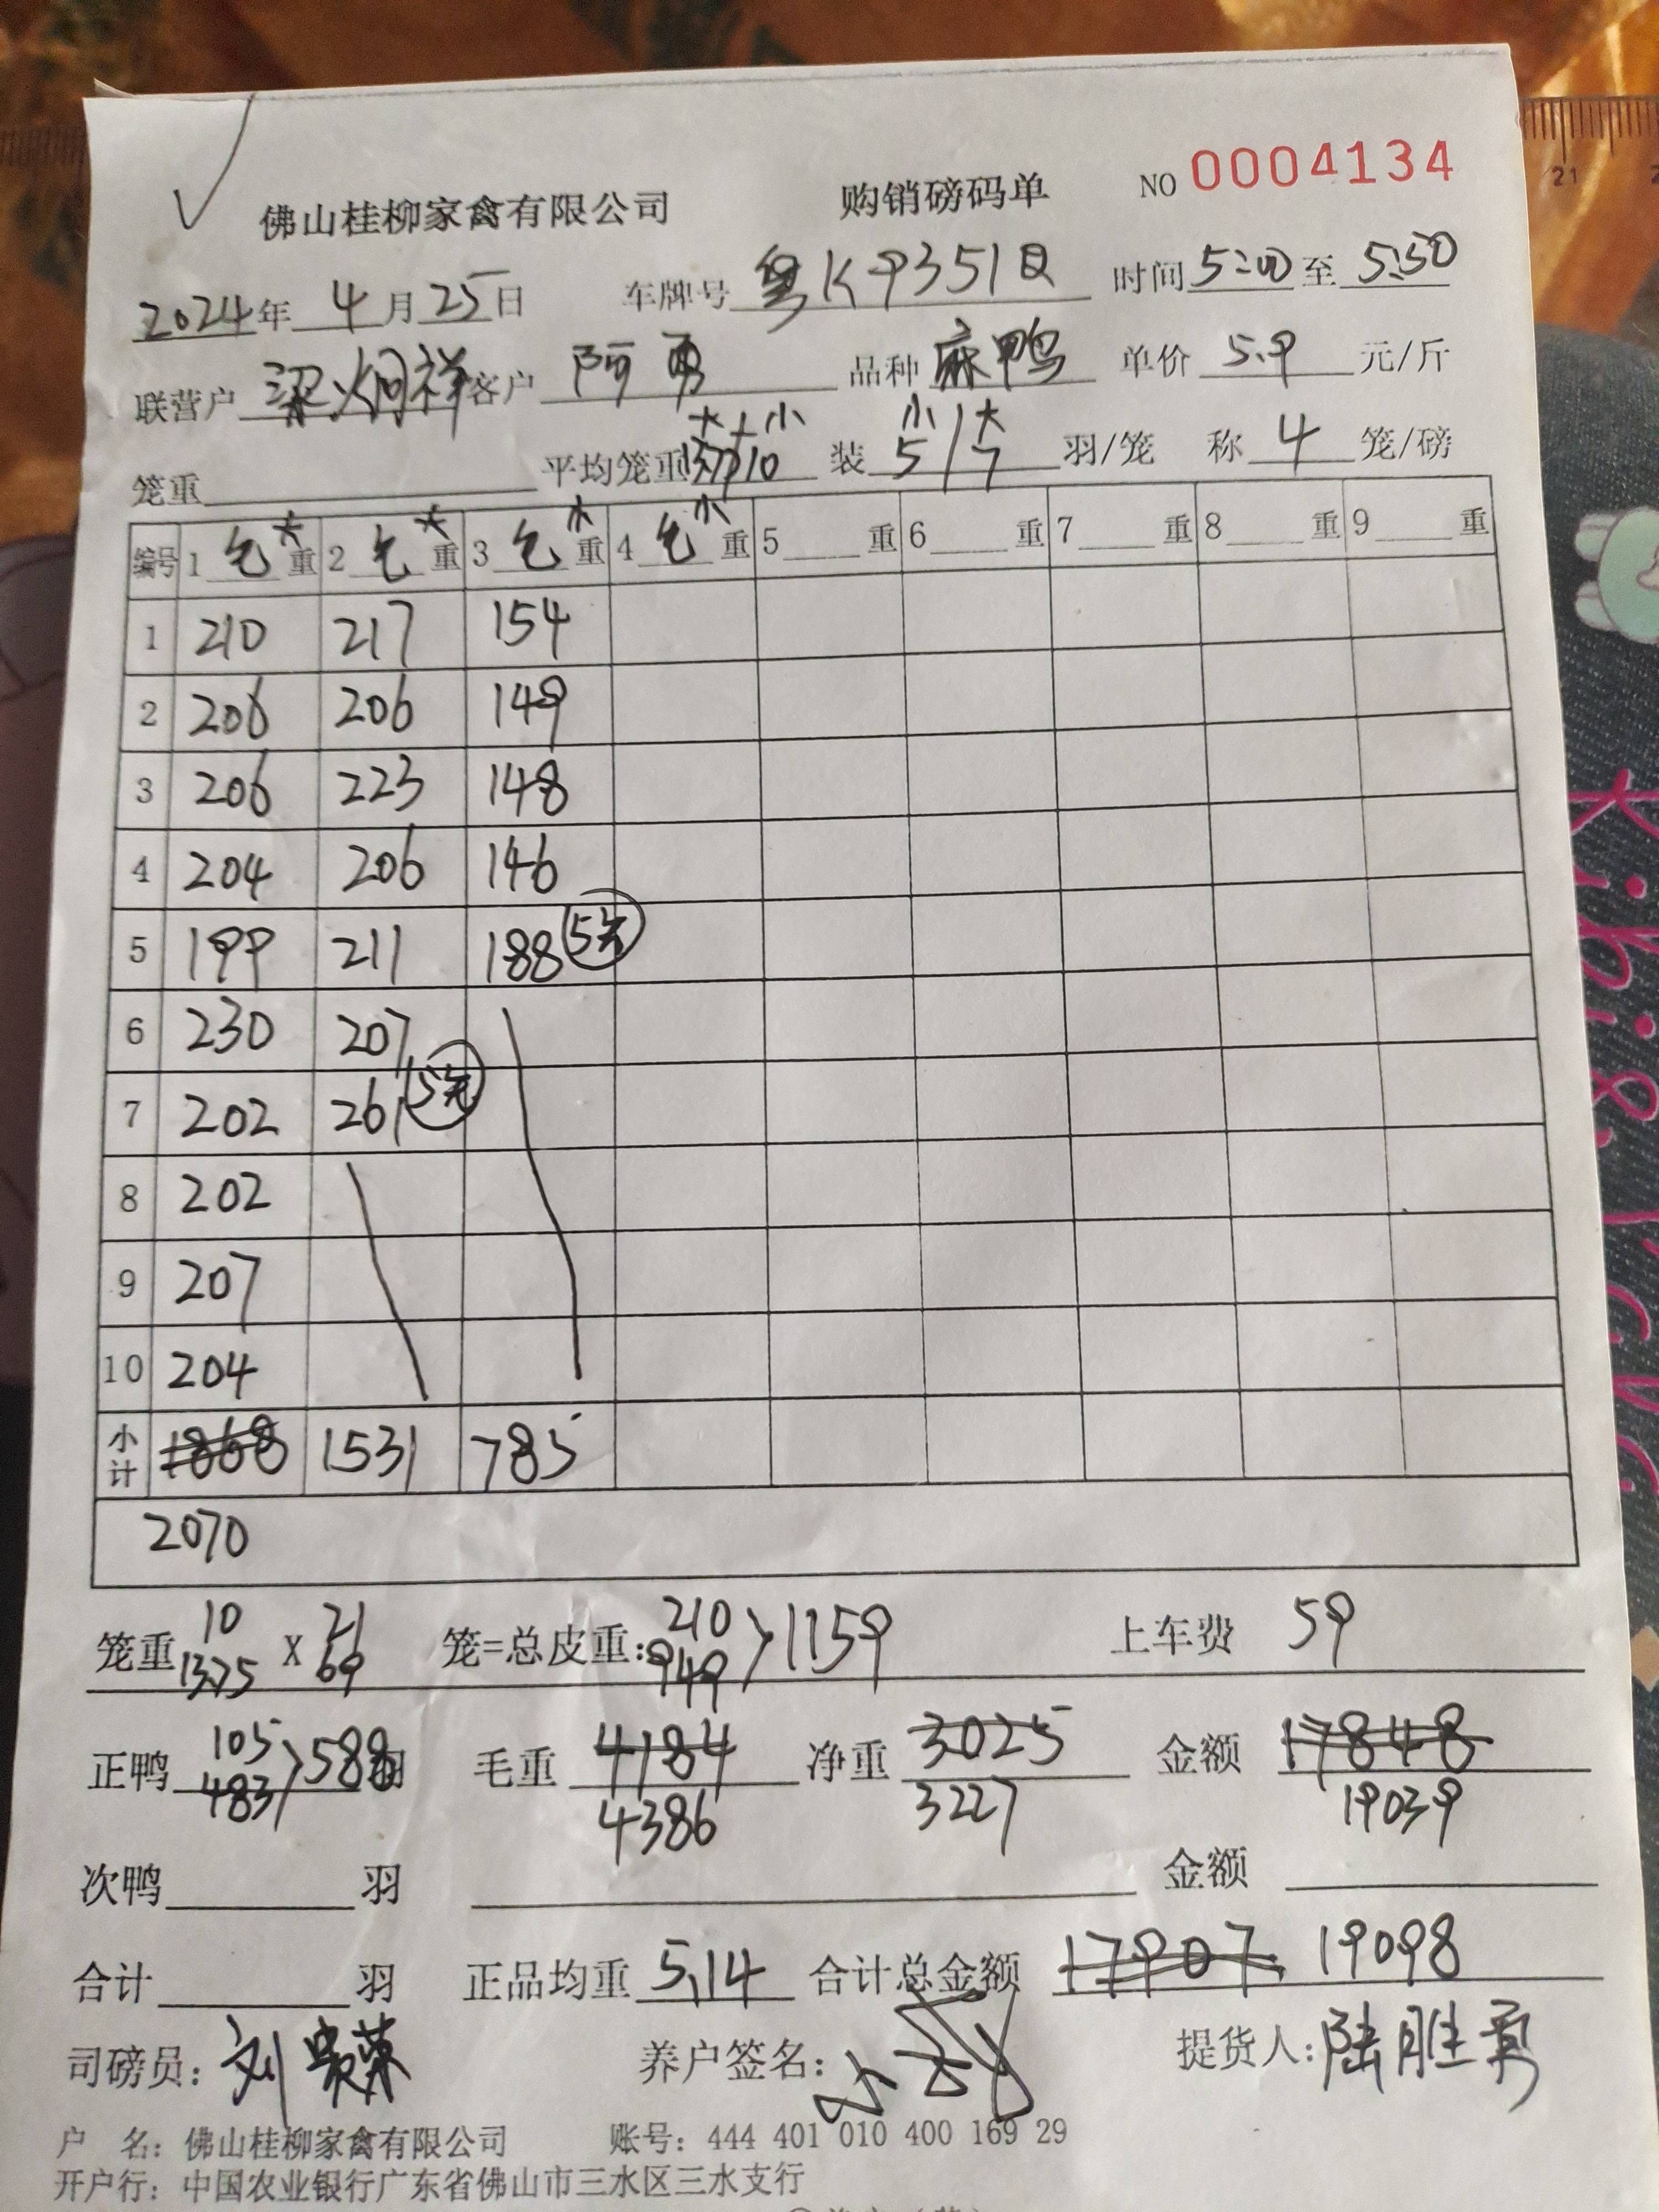 佛山桂柳家禽有限公司 购销磅码单 NO 0004134
2024年 4月25日 车牌号 粤K9351Q 时间 5:00 至 5:50
联营户 梁炳祥 客户 阿勇 品种 麻鸭 单价 5.9 元/斤
大 小 小 大
笼重 平均笼重 装 5/7 羽/笼 称 4 笼/磅
编号 1 毛大重 2 毛大重 3 毛小重 4 毛小重 5 重 6 重 7 重 8 重 9 重
1 210 217 154
2 206 206 149
3 206 223 148
4 204 206 146
5 199 211 188 5笼
6 230 207
7 202 261 5笼
8 202
9 207
10 204
小计 1868 1531 785
2070
笼重 10 13.75 X 21 69 笼=总皮重: 210 949 1159 上车费 59
正鸭 105 483 588 羽 毛重 4184 净重 3025 金额 17848
4386 3227 19039
次鸭 羽 金额
合计 羽 正品均重 5.14 合计总金额 17907 19098
司磅员: 养户签名: 提货人: 陆胜勇
户 名: 佛山桂柳家禽有限公司 账号: 444 401 010 400 169 29
开户行: 中国农业银行广东省佛山市三水区三水支行
21